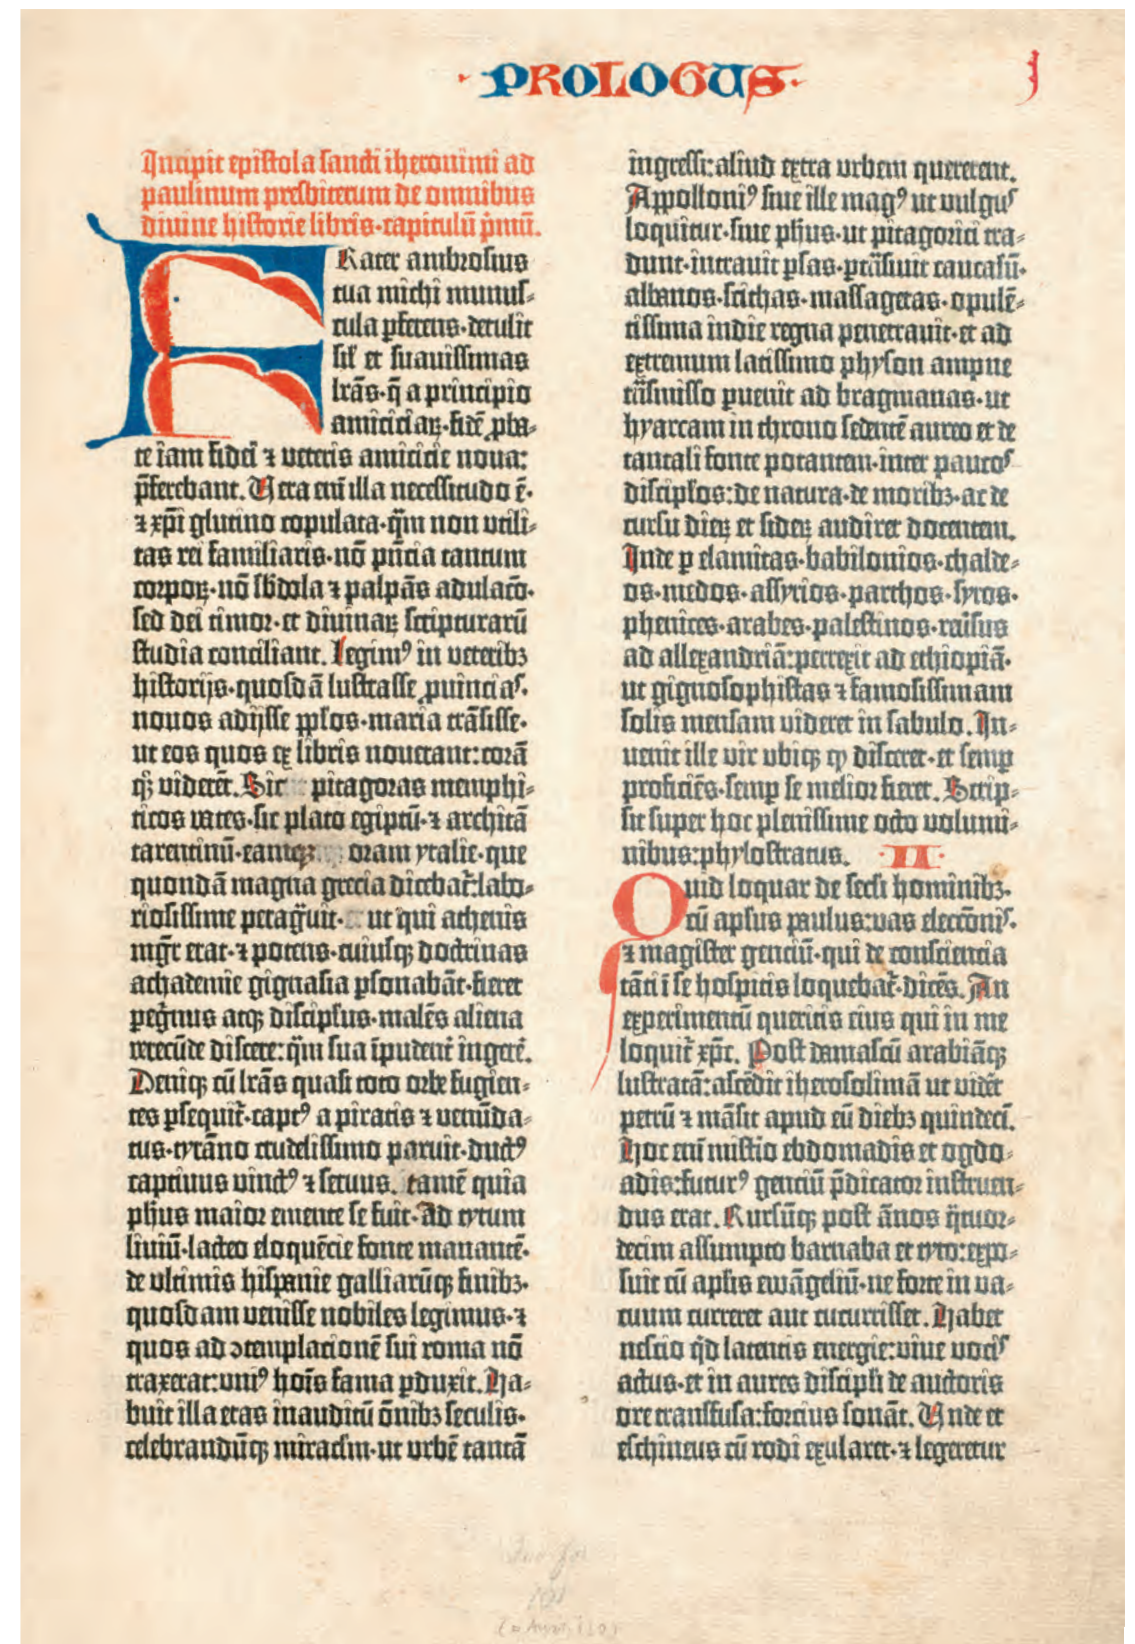 PROLOGUS
I
Incipit epistola sancti iheronimi ad
paulinum presbiterum de omnibus
divine historie libris·capitulū p̄mū.
Frater ambrosius
tua michi munus-
cula pferens·detulit
sil' et suavissimas
lr̄as·q̄ a principio
amiciciaꝝ·fidē ꝓba-
te iam fidei ⁊ veteris amicicie nova:
p̄ferebant. Vera eni illa necessitudo ē·
⁊ xp̄i glutino copulata·q̄m non utili-
tas rei familiaris·nō pn̄cia tantum
corpoꝝ·nō sbdola ⁊ palpās adulacō·
sed dei timor·et divinaꝝ scripturarū
studia conciliant. Legimꝰ in veteribꝫ
historijs·quosdā lustrasse ꝓvincias·
novos adijsse pplos·maria trāsisse·
ut eos quos ex libris noverant: corā
qꝫ viderēt. Sic pitagoras memphi-
ticos vates·sic plato egiptū·⁊ architā
tarentinū·eamqꝫ oram ytalie·que
quondā magna grecia dicebat̄: labo-
riosissime peragūit· ut qui athenis
mgr̄ erat·⁊ potens·cuiusqꝫ doctrinas
achademie gignasia psonabāt·fieret
peg̃nus atqꝫ discipulus·malēs aliena
verecūde discere: q̄m sua īpudent̄ ingerē.
Deniqꝫ cū lr̄as quasi toto orbe fugien-
tes psequit̄·captꝰ a piratis ⁊ venūda-
tus·tyrāno crudelissimo paruit·ductꝰ
captivus vinctꝰ ⁊ servus. tamē quia
phūs maior emente se fuit· Ad tytum
liviū·lacteo eloquēcie fonte manantē·
de ultimis hispanie galliarūqꝫ finibꝫ·
quosdam venisse nobiles legimus·⁊
quos ad ↄtemplacionē sui roma nō
traxerat: uniꝰ hoīs fama pduxit. Ha-
buit illa etas inauditū ōnibꝫ seculis·
celebrandūqꝫ miraclm·ut urbē tantā
ingressi: aliud extra urbem quererent.
Appolloniꝰ sive ille magꝰ ut vulgus
loquitur·sive phūs·ut pitagorici tra-
dunt·intravit psas·ptrāsivit caucasū·
albanos·scithas·massagetas·opulē-
tissima indie regna penetravit·et ad
extremum latissimo physon ampne
trāsmisso pvenit ad bragmanas·ut
hyarcam in throno sedentē aureo et de
tantali fonte potantem·inter paucos
discipl̄os: de natura·de moribꝫ·ac de
cursu dieꝝ et sideꝝ audiret docentem.
Inde p elamitas·babilonios·chalde-
os·medos·assyrios·parthos·syros·
phenices·arabes·palestinos·reūsus
ad allexandriā: perrexit ad ethiopiā·
ut gignosophistas ⁊ famosissimam
solis mensam videret in sabulo. In-
venit ille vir ubiqꝫ qd disceret·et semp
proficiēs·semp se melior fieret. Scrip-
sit super hoc plenissime octo volumi-
nibus: phylostratus. II
Quid loquar de secl'i hominibꝫ·
cū apl̄us paulus: vas electōnis·
⁊ magister genciū·qui de consciencia
tāti ī se hospitis loquebat̄·dicēs. An
experimentū queritis eius qui in me
loquit̄ xp̄c. Post damascū arabiāqꝫ
lustratā: ascēdit iherosolimā ut vidēt
petrū ⁊ māsit apud eū diebꝫ quindecī.
Hoc eni mistio ebdomadis et ogdo-
adis: futurꝰ genciū p̄dicator instruen-
dus erat. Rursūqꝫ post ānos q̄tuor-
decim assumpto barnaba et tyto: expo-
suit cū apl̄is ewāgeliū·ne forte in va-
cuum curreret aut cucurrisset. Habet
nescio q̄d latentis energie: vive vocis
actus·et in aures discipl̄i de auctoris
ore transfusa: forcius sonāt. Unde et
eschineus cū rodi exularet·⁊ legeretur